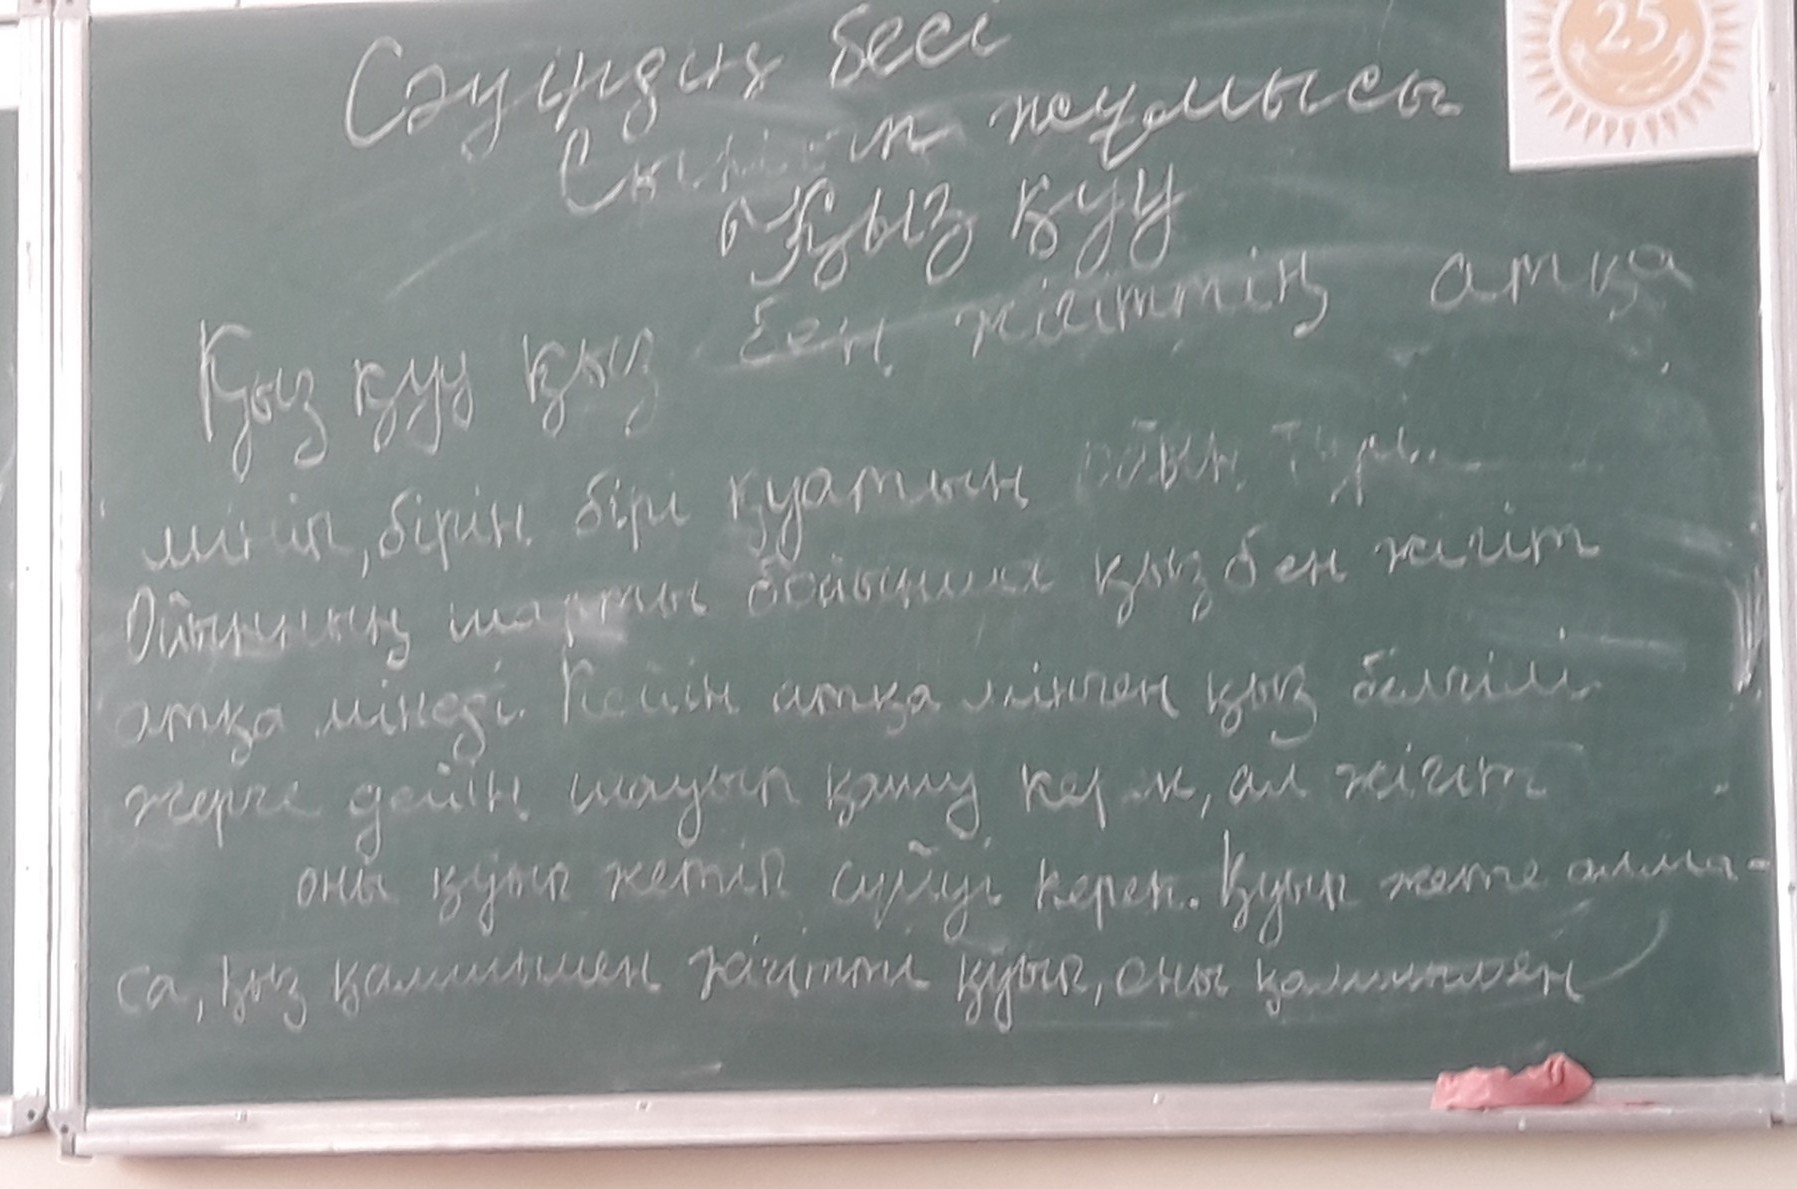 25
Сәуірдің бесі
Сынып жұмысы
Қыз қуу
Қыз қуу қыз бен жігіттің атқа
мініп, бірін бірі қуатын ойын түрі.
Ойынның шарты бойынша қыз бен жігіт
атқа мінеді. Кейін атқа мінген қыз белгілі
жерге дейін шауып қашу керек, ал жігіт
оны қуып жетіп сүйуі керек. Қуып жете алма-
са, қыз қамшымен жігітті қуып, оны қамшымен